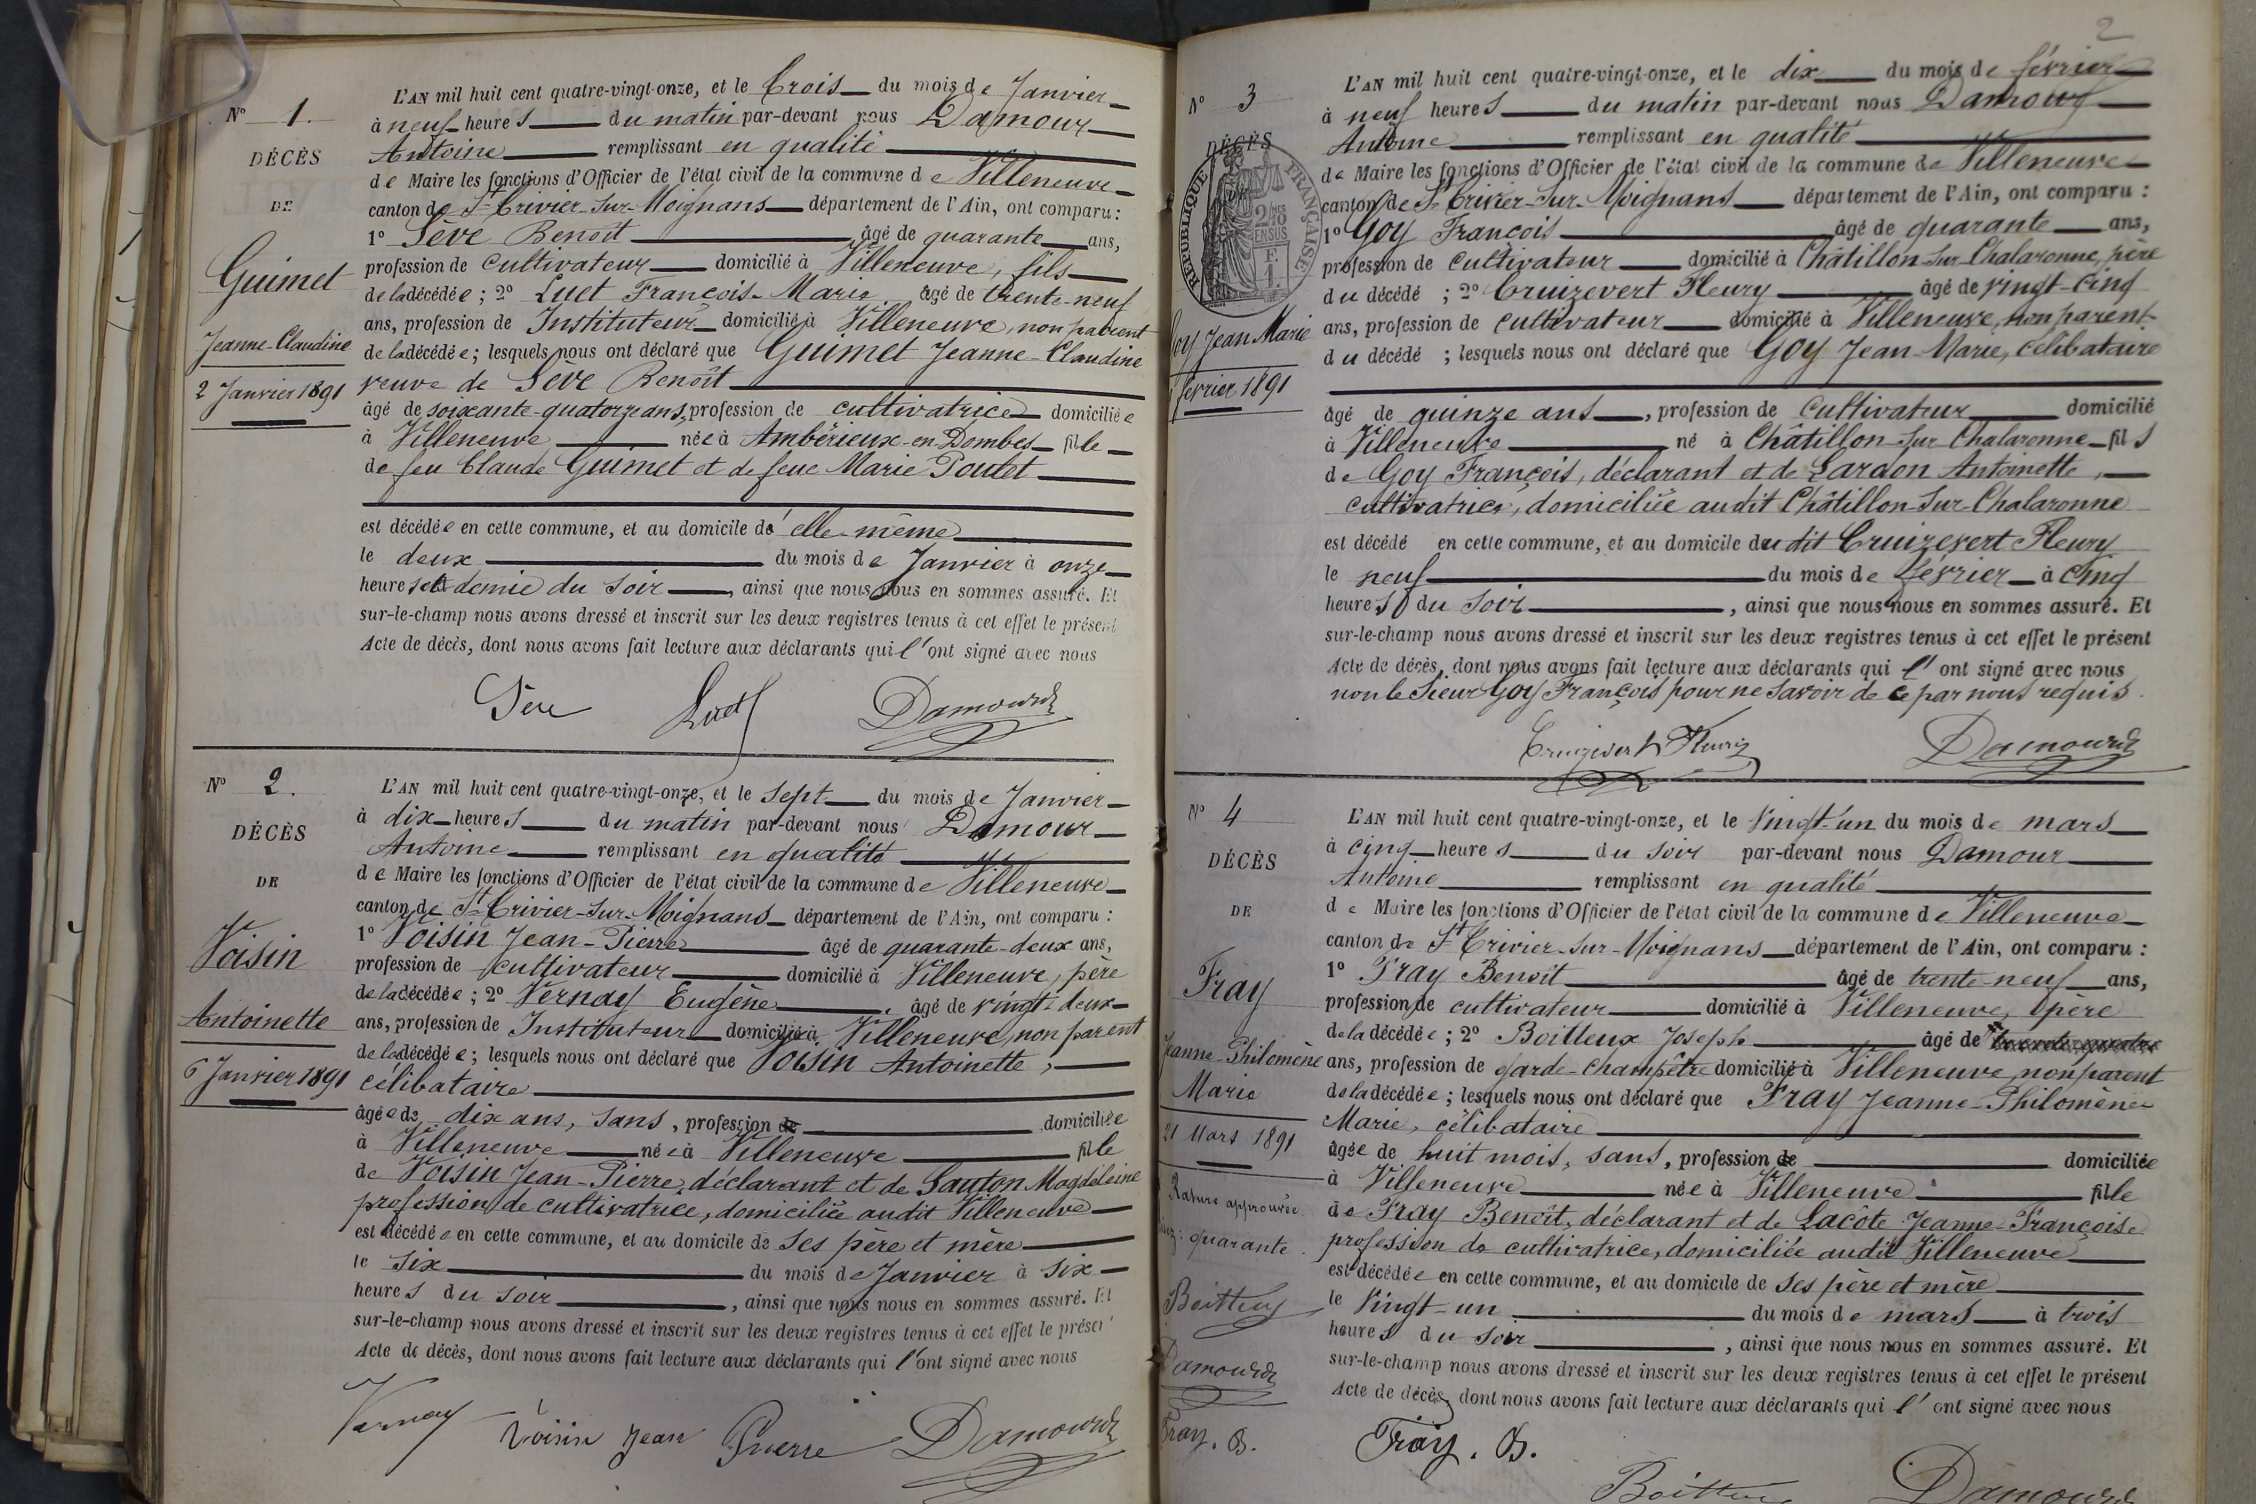 N° 1.
DÉCÈS
DE
Guimet
Jeanne-Claudine
2 Janvier 1891
L'AN mil huit cent quatre-vingt-onze, et le trois du mois de Janvier
à neuf heures du matin par-devant nous Damour
Antoine remplissant en qualité
de Maire les fonctions d'Officier de l'état civil de la commune de Villeneuve
canton de St Trivier-sur-Moignans département de l'Ain, ont comparu :
1° Sève Benoît âgé de quarante ans,
profession de cultivateur domicilié à Villeneuve, fils
de la décédée ; 2° Luet François-Marie âgé de trente-neuf
ans, profession de Instituteur domicilié à Villeneuve, non parent
de la décédée ; lesquels nous ont déclaré que Guimet Jeanne-Claudine
veuve de Sève Benoît
âgé de soixante-quatorze ans, profession de cultivatrice domiciliée
à Villeneuve née à Ambérieux-en-Dombes fille
de feu Claude Guimet et de feue Marie Poulet
est décédée en cette commune, et au domicile d'elle-même
le deux du mois de Janvier à onze
heures et demie du soir, ainsi que nous nous en sommes assuré. Et
sur-le-champ nous avons dressé et inscrit sur les deux registres tenus à cet effet le présent
Acte de décès, dont nous avons fait lecture aux déclarants qui l'ont signé avec nous
Sève Luet Damour
N° 2.
DÉCÈS
DE
Voisin
Antoinette
6 Janvier 1891
L'AN mil huit cent quatre-vingt-onze, et le sept du mois de Janvier
à dix heures du matin par-devant nous Damour
Antoine remplissant en qualité
de Maire les fonctions d'Officier de l'état civil de la commune de Villeneuve
canton de St Trivier-sur-Moignans département de l'Ain, ont comparu :
1° Voisin Jean-Pierre âgé de quarante-deux ans,
profession de cultivateur domicilié à Villeneuve, père
de la décédée ; 2° Vernay Eugène, âgé de vingt-deux
ans, profession de Instituteur domicilié à Villeneuve, non parent
de la décédée ; lesquels nous ont déclaré que Voisin Antoinette,
célibataire
âgée de dix ans, sans, profession de domiciliée
à Villeneuve née à Villeneuve fille
de Voisin Jean-Pierre, déclarant et de Santon Magdeleine
profession de cultivatrice, domiciliée audit Villeneuve
est décédée en cette commune, et au domicile de ses père et mère
le six du mois de Janvier à six
heures du soir, ainsi que nous nous en sommes assuré. Et
sur-le-champ nous avons dressé et inscrit sur les deux registres tenus à cet effet le présent
Acte de décès, dont nous avons fait lecture aux déclarants qui l'ont signé avec nous
Vernay Voisin Jean Pierre Damour
2
N° 3
DÉCÈS
RÉPUBLIQUE FRANÇAISE
Goy Jean Marie
février 1891
L'AN mil huit cent quatre-vingt-onze, et le dix du mois de février
à neuf heures du matin par-devant nous Damour
Antoine remplissant en qualité
de Maire les fonctions d'Officier de l'état civil de la commune de Villeneuve
canton de St Trivier-sur-Moignans département de l'Ain, ont comparu :
1° Goy François âgé de quarante ans,
profession de cultivateur domicilié à Châtillon-sur-Chalaronne, père
du décédé ; 2° Cruizevert Fleury âgé de vingt-cinq
ans, profession de cultivateur domicilié à Villeneuve, non parent
du décédé ; lesquels nous ont déclaré que Goy Jean-Marie, célibataire
âgé de quinze ans, profession de cultivateur domicilié
à Villeneuve né à Châtillon-sur-Chalaronne fils
de Goy François, déclarant et de Lardon Antoinette,
cultivatrice, domiciliée audit Châtillon-sur-Chalaronne
est décédé en cette commune, et au domicile dudit Cruizevert Fleury
le neuf du mois de février à cinq
heures du soir, ainsi que nous nous en sommes assuré. Et
sur-le-champ nous avons dressé et inscrit sur les deux registres tenus à cet effet le présent
Acte de décès, dont nous avons fait lecture aux déclarants qui l'ont signé avec nous
non le sieur Goy François pour ne savoir de ce par nous requis.
Cruizevert Fleury Damour
N° 4
DÉCÈS
DE
Fray
Jeanne-Philomène
Marie
21 Mars 1891
Rature approuvée
quarante.
Boitteux
Damour
Fray. B.
L'AN mil huit cent quatre-vingt-onze, et le vingt-un du mois de mars
à cinq heures du soir par-devant nous Damour
Antoine remplissant en qualité
de Maire les fonctions d'Officier de l'état civil de la commune de Villeneuve
canton de St Trivier-sur-Moignans département de l'Ain, ont comparu :
1° Fray Benoît âgé de trente-neuf ans,
profession de cultivateur domicilié à Villeneuve, père
de la décédée ; 2° Boitteux Joseph âgé de
ans, profession de garde-champêtre domicilié à Villeneuve, non parent
de la décédée ; lesquels nous ont déclaré que Fray Jeanne-Philomène
Marie, célibataire
âgée de huit mois, sans, profession de domiciliée
à Villeneuve née à Villeneuve fille
de Fray Benoît, déclarant et de Lacôte Jeanne-Françoise
profession de cultivatrice, domiciliée audit Villeneuve
est décédée en cette commune, et au domicile de ses père et mère
le vingt-un du mois de mars à trois
heures du soir, ainsi que nous nous en sommes assuré. Et
sur-le-champ nous avons dressé et inscrit sur les deux registres tenus à cet effet le présent
Acte de décès, dont nous avons fait lecture aux déclarants qui l'ont signé avec nous
Fray. B.
Boitteux Damour